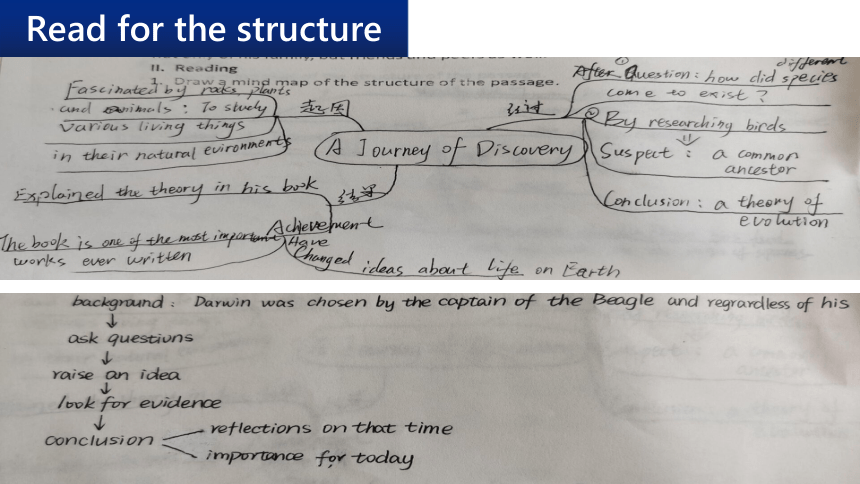 Read for the structure
II. Reading
1. Draw a mind map of the structure of the passage.
Fascinated by rocks, plants
and animals : To study
various living things
in their natural evironments
起因
经过
A Journey of Discovery
① different
After Question : how did species
come to exist ?
② By researching birds
Suspect : a common
ancestor
Conclusion : a theory of
evolution
结果
Explained the theory in his book
Achievement
The book is one of the most important
works ever written
Have
Changed ideas about life on Earth
background : Darwin was chosen by the captain of the Beagle and regrardless of his
↓
ask questiuns
↓
raise an idea
↓
look for evidence
↓
conclusion
reflections on that time
importance for today